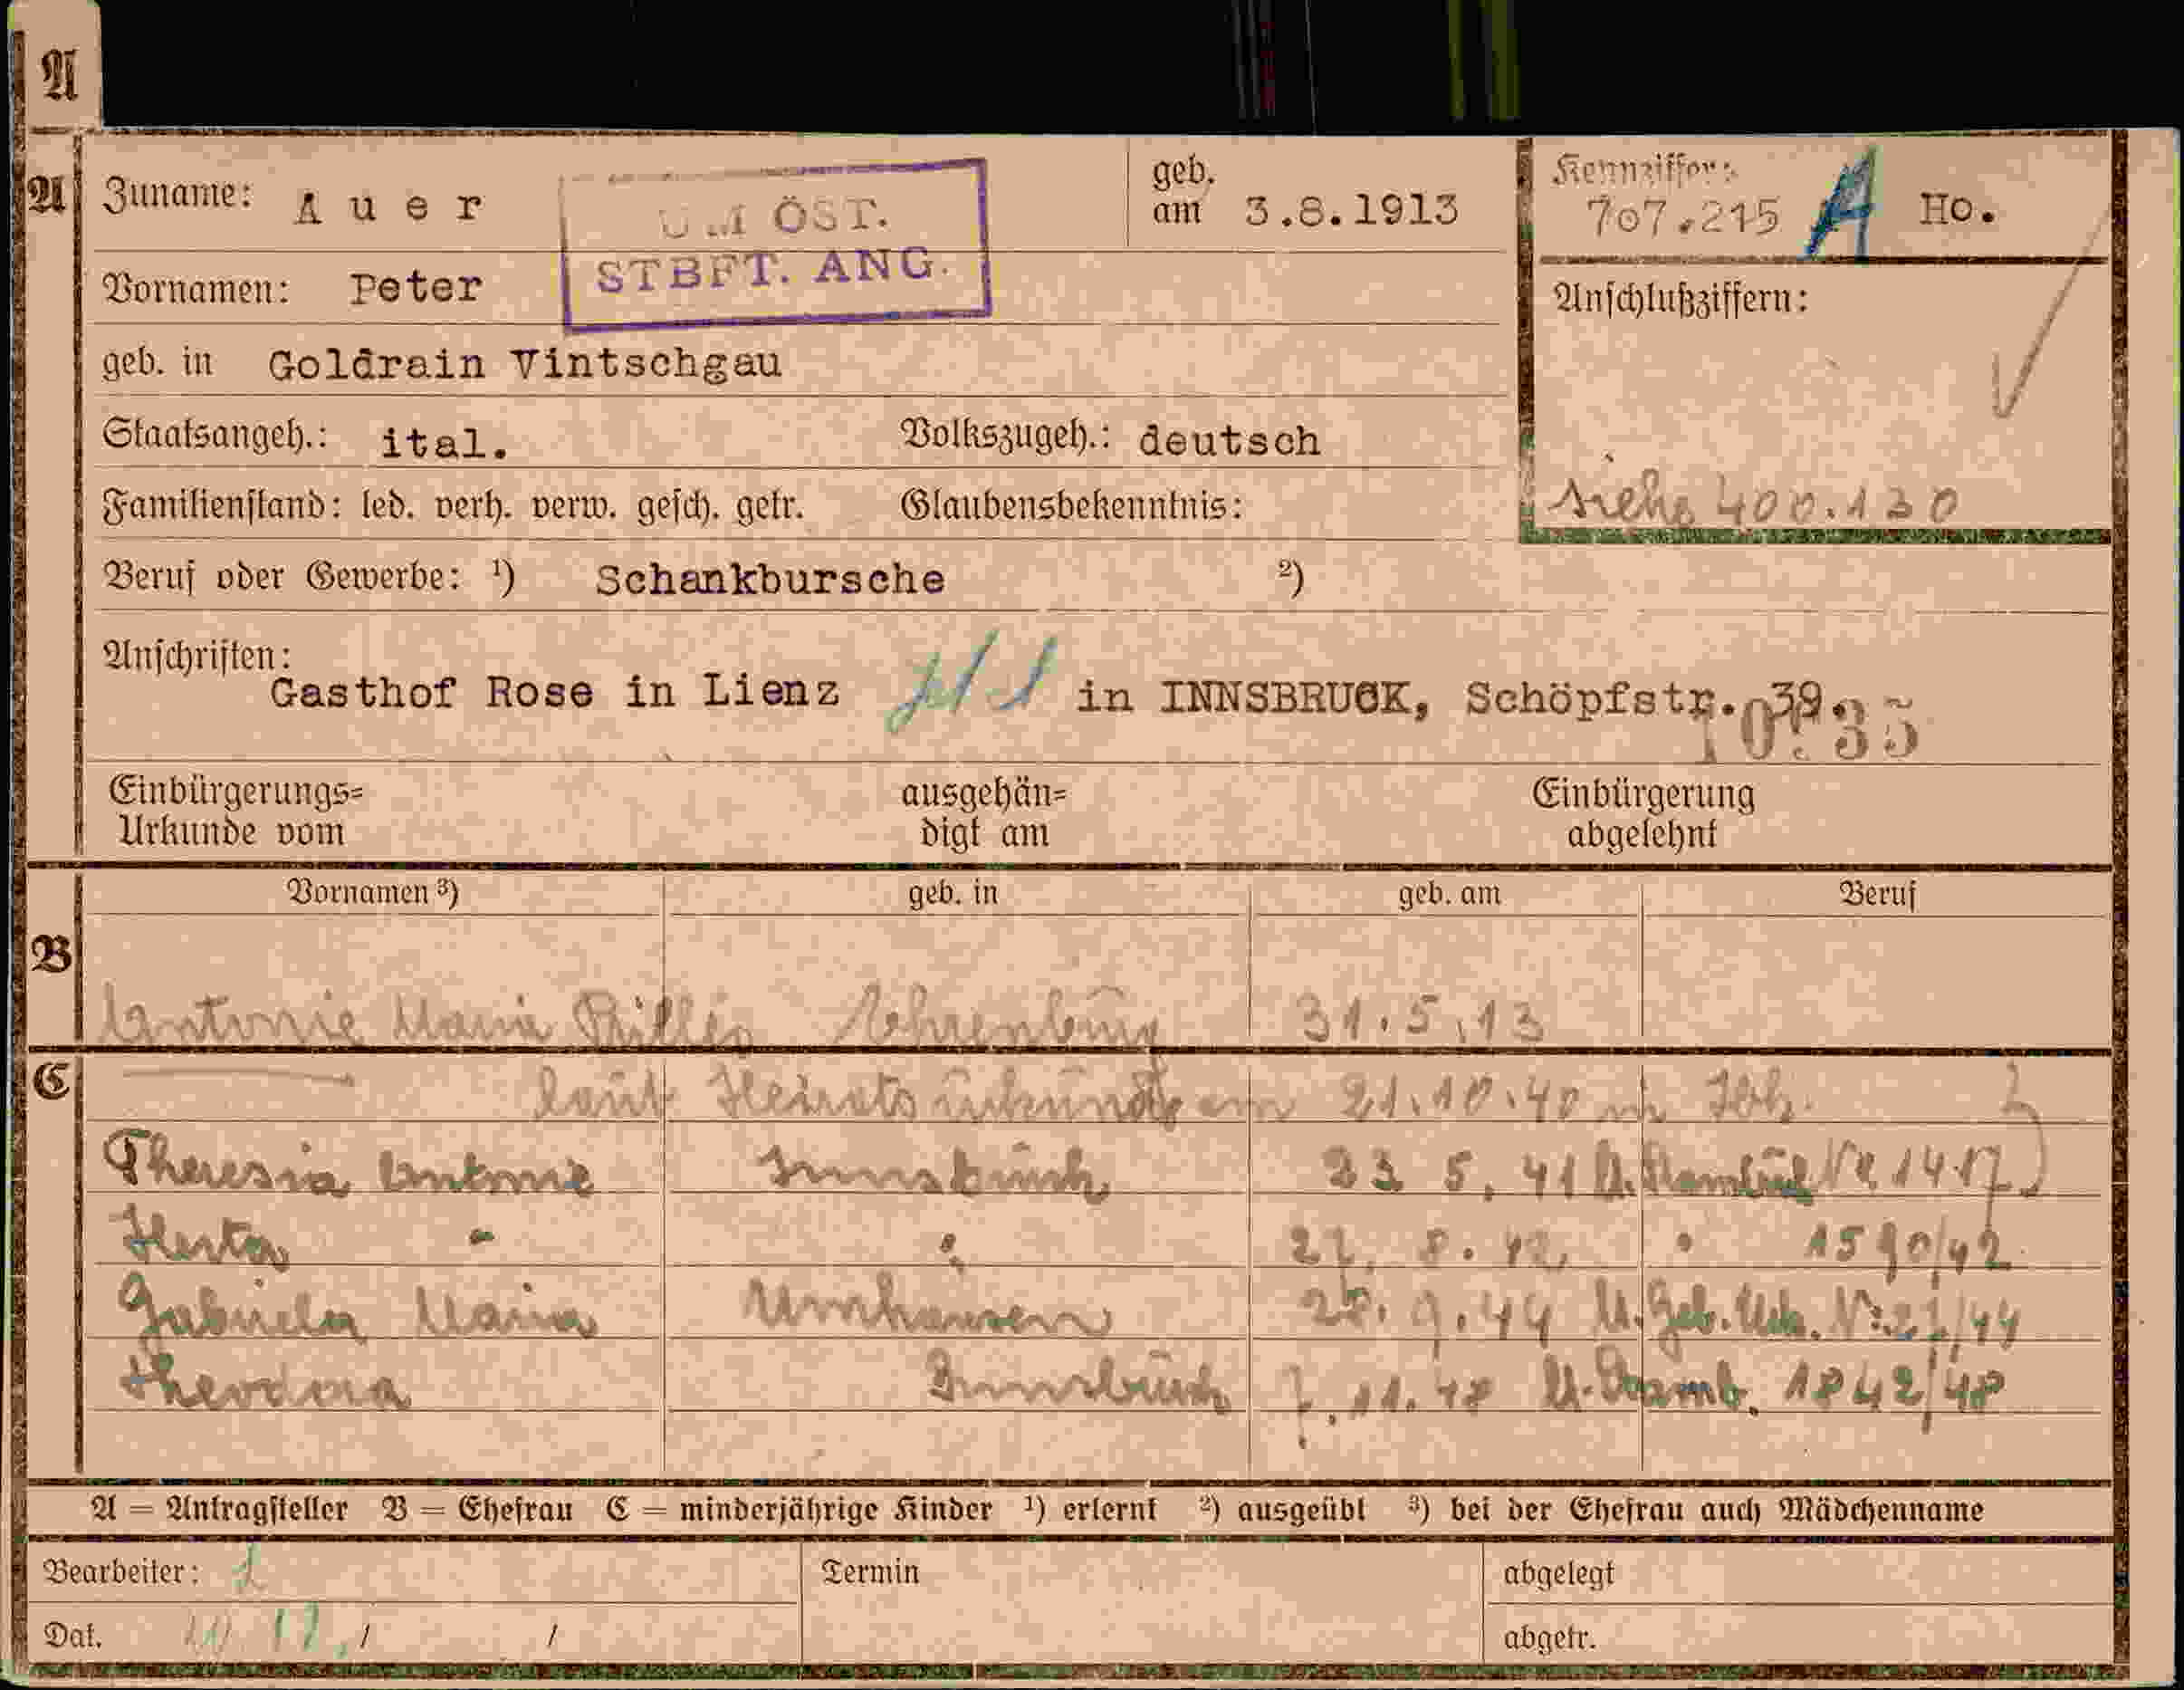 A
A Zuname: Auer geb. am 3.8.1913 Kennziffer: 707.215 A Ho.
UM ÖST.
STBFT. ANG.
Vornamen: Peter Anschlußziffern:
geb. in Goldrain Vintschgau
Staatsangeh.: ital. Volkszugeh.: deutsch
Familienstand: led. verh. verw. gesch. getr. Glaubensbekenntnis: siehe 400.130
Beruf oder Gewerbe: ¹) Schankbursche ²)
Anschriften:
Gasthof Rose in Lienz in INNSBRUCK, Schöpfstr. 39.
Einbürgerungs= ausgehän= Einbürgerung
Urkunde vom digt am abgelehnt
Vornamen ³) geb. in geb. am Beruf
B
Antonie Maria Ehrenburg 31.5.13
C laut Heiratsurkunde am 21.10.40 in Ibk.
Theresia Antonie Innsbruck 5. 41
Herta " " 8. 42 " 1590/42
Gabriela Maria Umhausen 9.44 U. Geb. Urk. 
Theodora Innsbruck 7.11.48 1842/48
A = Antragsteller B = Ehefrau C = minderjährige Kinder ¹) erlernt ²) ausgeübt ³) bei der Ehefrau auch Mädchenname
Bearbeiter: Termin abgelegt
Dat. / / abgetr.